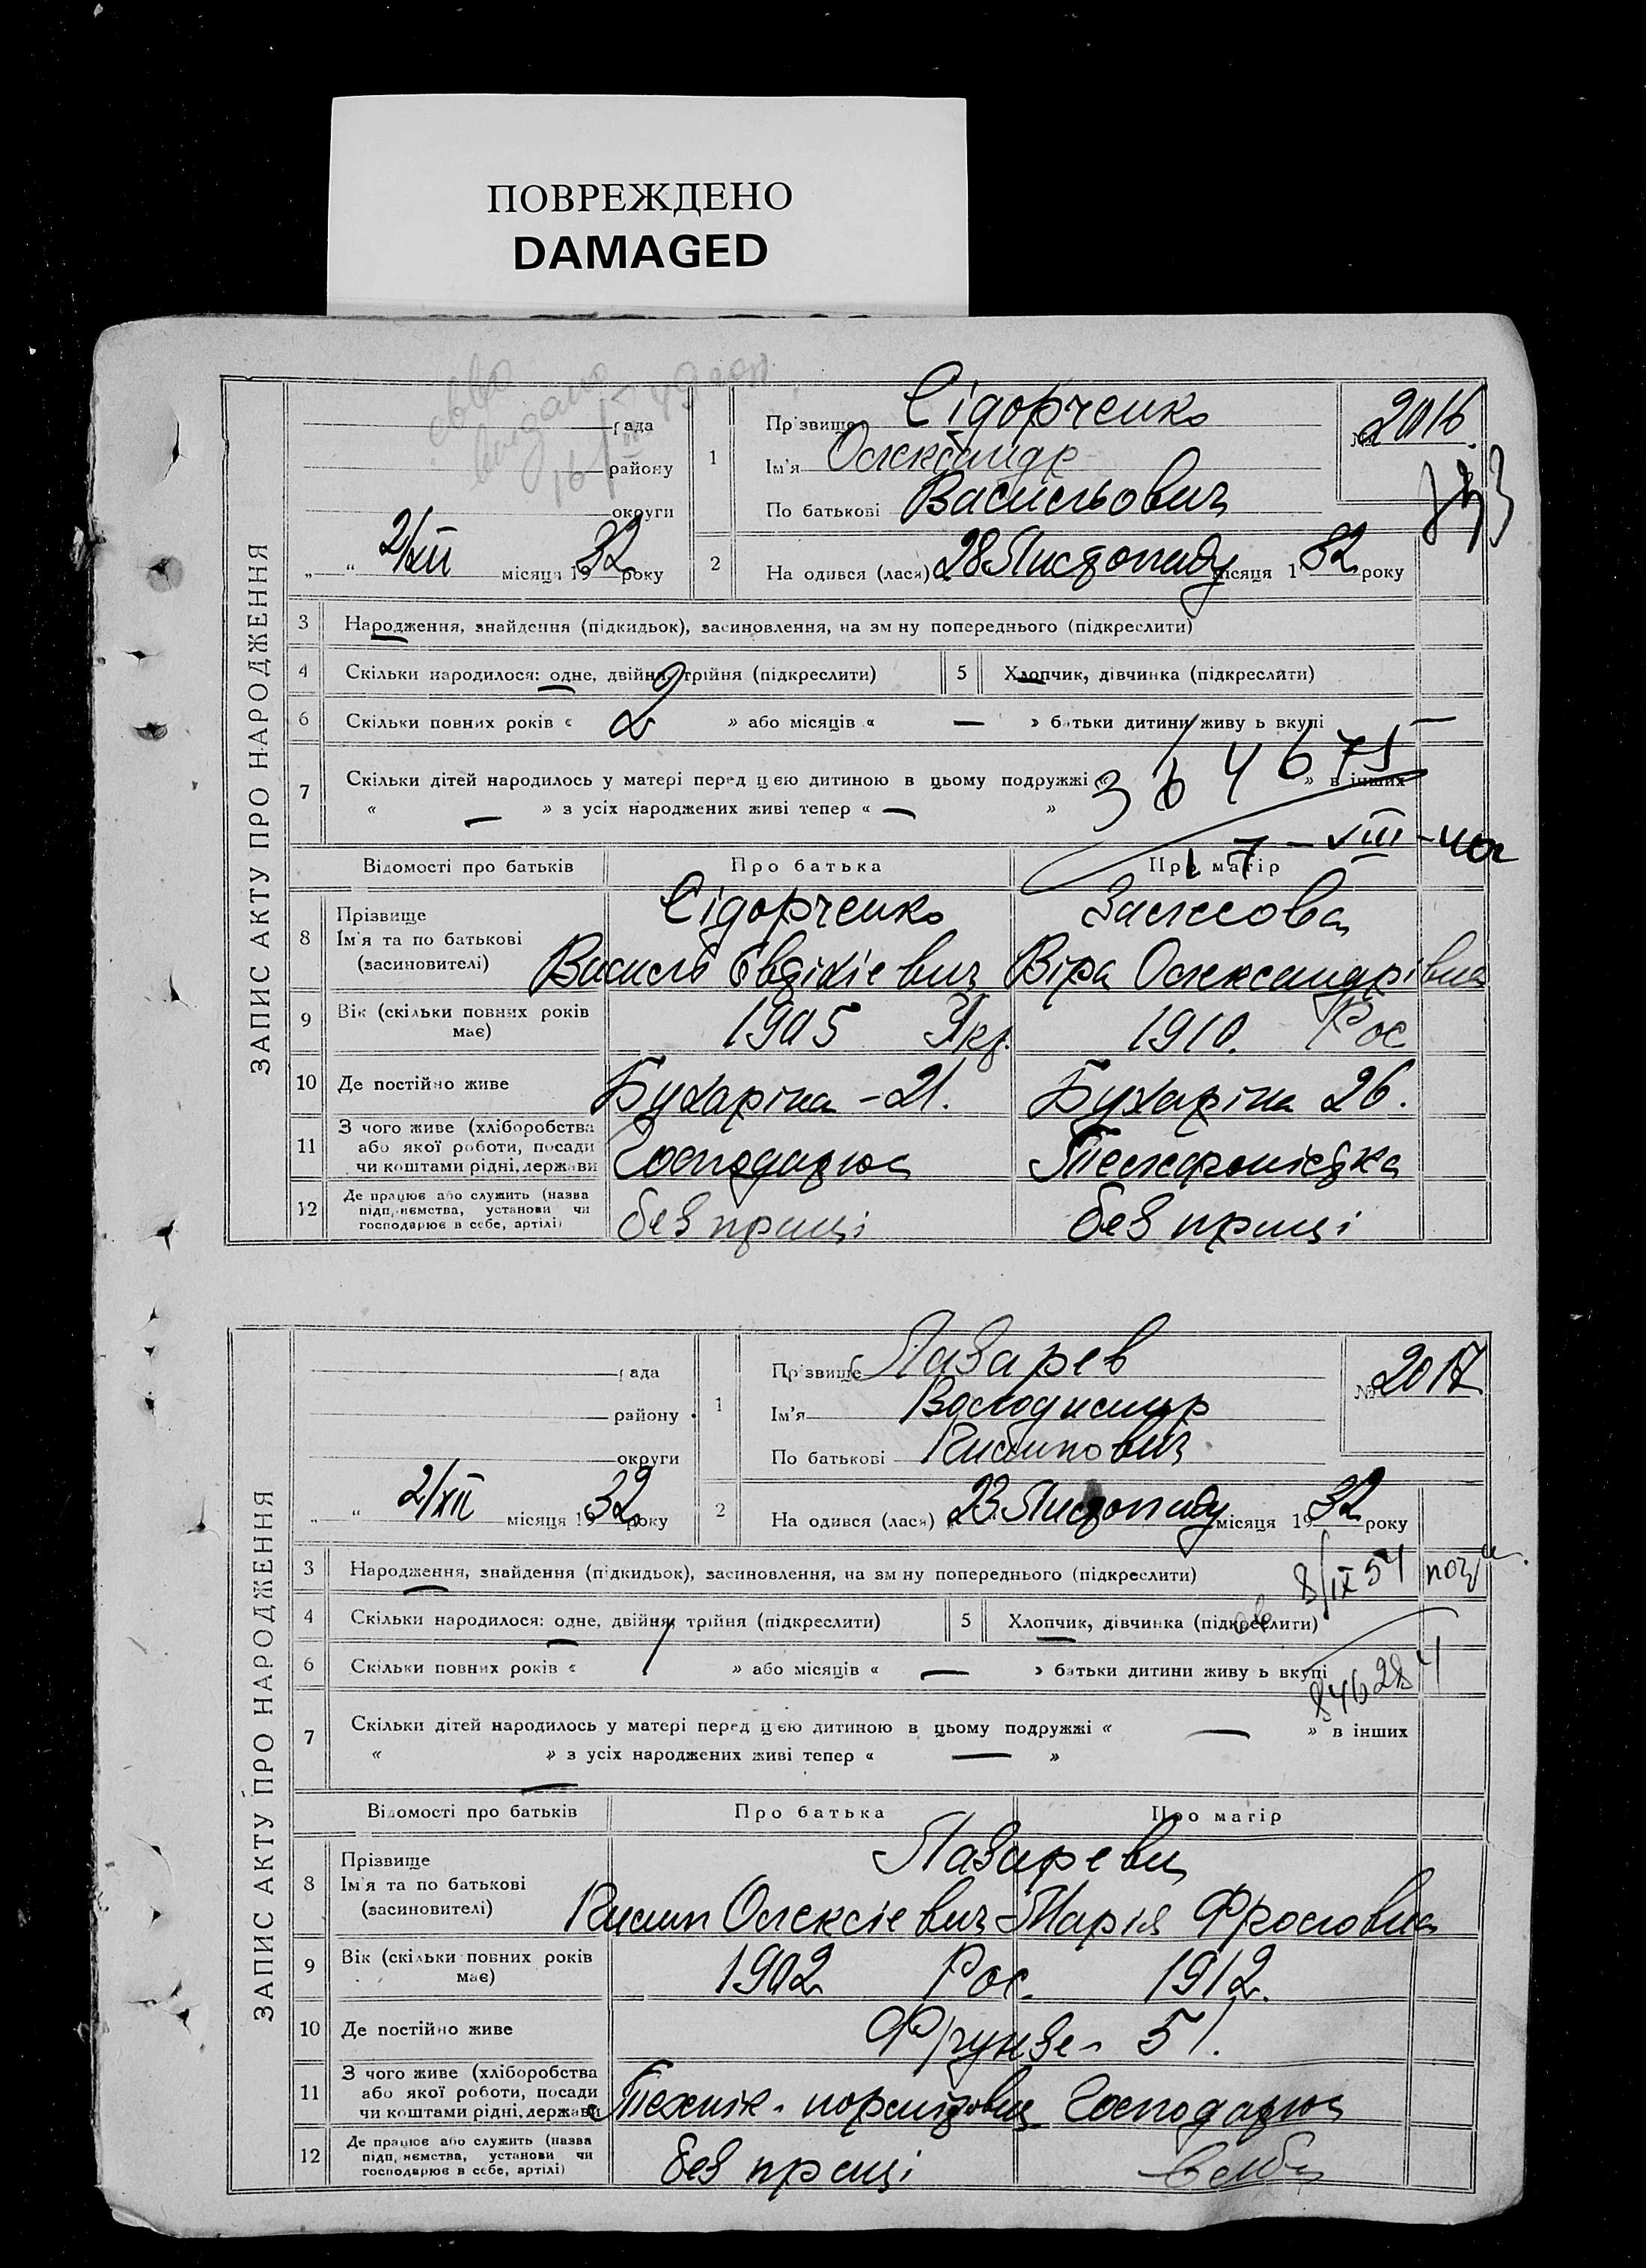 ПОВРЕЖДЕНО
DAMAGED
ЗАПИС АКТУ ПРО НАРОДЖЕННЯ
рада
району
округи
„ “ 2/XII місяця 1932 року
1
Прізвище Сідорченко
Ім'я Олександр
По батькові Васильович
№ 2016
2
На одився (лася) 28 Листопаду місяця 1 32 року
3 Народження, знайдення (підкидьок), засиновлення, на зм ну попереднього (підкреслити)
4 Скільки народилося: одне, двійня, трійня (підкреслити)
5 Хлопчик, дівчинка (підкреслити)
6 Скільки повних років « 2 » або місяців « — » батьки дитини живу ь вкупі
7 Скільки дітей народилось у матері перед цією дитиною в цьому подружжі « » в інших
« — » з усіх народжених живі тепер « — »
Відомості про батьків Про батька Про матір
8 Прізвище Ім'я та по батькові (засиновителі)
Сідорченко
Василь Євдікієвич Віра Олександрівна
9 Вік (скільки повних років має) 1905 Укр. 1910. Рос
10 Де постійно живе Бухаріна – 21. Бухаріна 26.
11 З чого живе (хліборобства або якої роботи, посади чи коштами рідні, держави Господарює Телефоністка
12 Де працює або служить (назва підприємства, установи чи господарює в себе, артілі) без праці без праці
ЗАПИС АКТУ ПРО НАРОДЖЕННЯ
рада
району
округи
„ “ 2/XII місяця 1932 року
1
Прізвище Лазарев
Ім'я Володимир
По батькові
№ 2017
2
На одився (лася) 23 Листопаду місяця 1932 року
3 Народження, знайдення (підкидьок), засиновлення, на зм ну попереднього (підкреслити) 8/IX 54
4 Скільки народилося: одне, двійня, трійня (підкреслити)
5 Хлопчик, дівчинка (підкреслити)
6 Скільки повних років « 1 » або місяців « — » батьки дитини живу ь вкупі
7 Скільки дітей народилось у матері перед цією дитиною в цьому подружжі « — » в інших
« — » з усіх народжених живі тепер « — »
Відомості про батьків Про батька Про матір
8 Прізвище Ім'я та по батькові (засиновителі)
Лазареви
Олексієвич Марія Фроловна
9 Вік (скільки повних років має) 1902 Рос. 1912.
10 Де постійно живе Фрунзе - 51.
11 З чого живе (хліборобства або якої роботи, посади чи коштами рідні, держави Технік - Господарює
12 Де працює або служить (назва підприємства, установи чи господарює в себе, артілі) без праці